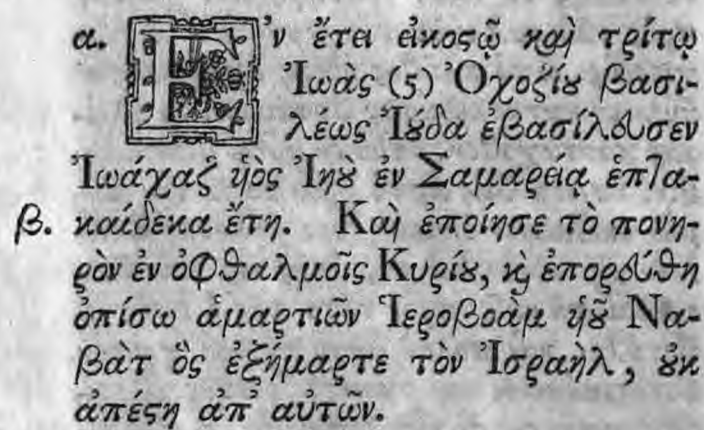 α. Ἐν ἔτει εἰκοστῷ καὶ τρίτῳ
Ἰωὰς (5) Ὀχοζίου βασι-
λέως Ἰούδα ἐβασίλευσεν
Ἰωάχαζ ὑὸς Ἰηοῦ ἐν Σαμαρείᾳ ἑπτα-
β. καίδεκα ἔτη. Καὶ ἐποίησε τὸ πονη-
ρὸν ἐν ὀφθαλμοῖς Κυρίου, καὶ ἐπορεύθη
ὀπίσω ἁμαρτιῶν Ἱεροβοὰμ ὑοῦ Να-
βὰτ ὃς ἐξήμαρτε τὸν Ἰσραὴλ, οὐκ
ἀπέστη ἀπ' αὐτῶν.